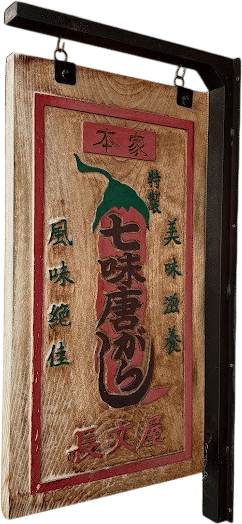 本家
特製
美味滋養
七味唐がらし
風味絶佳
長文屋